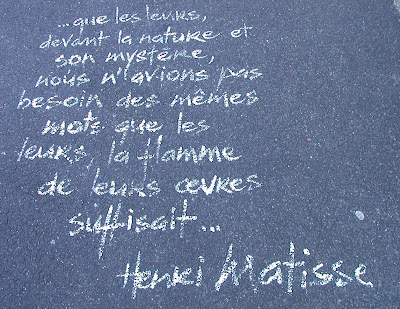 ...que les leurs,
devant la nature et
son mystère,
nous n'avions pas
besoin des mêmes
mots que les
leurs, la flamme
de leurs œvres
suffisait...
Henri Matisse